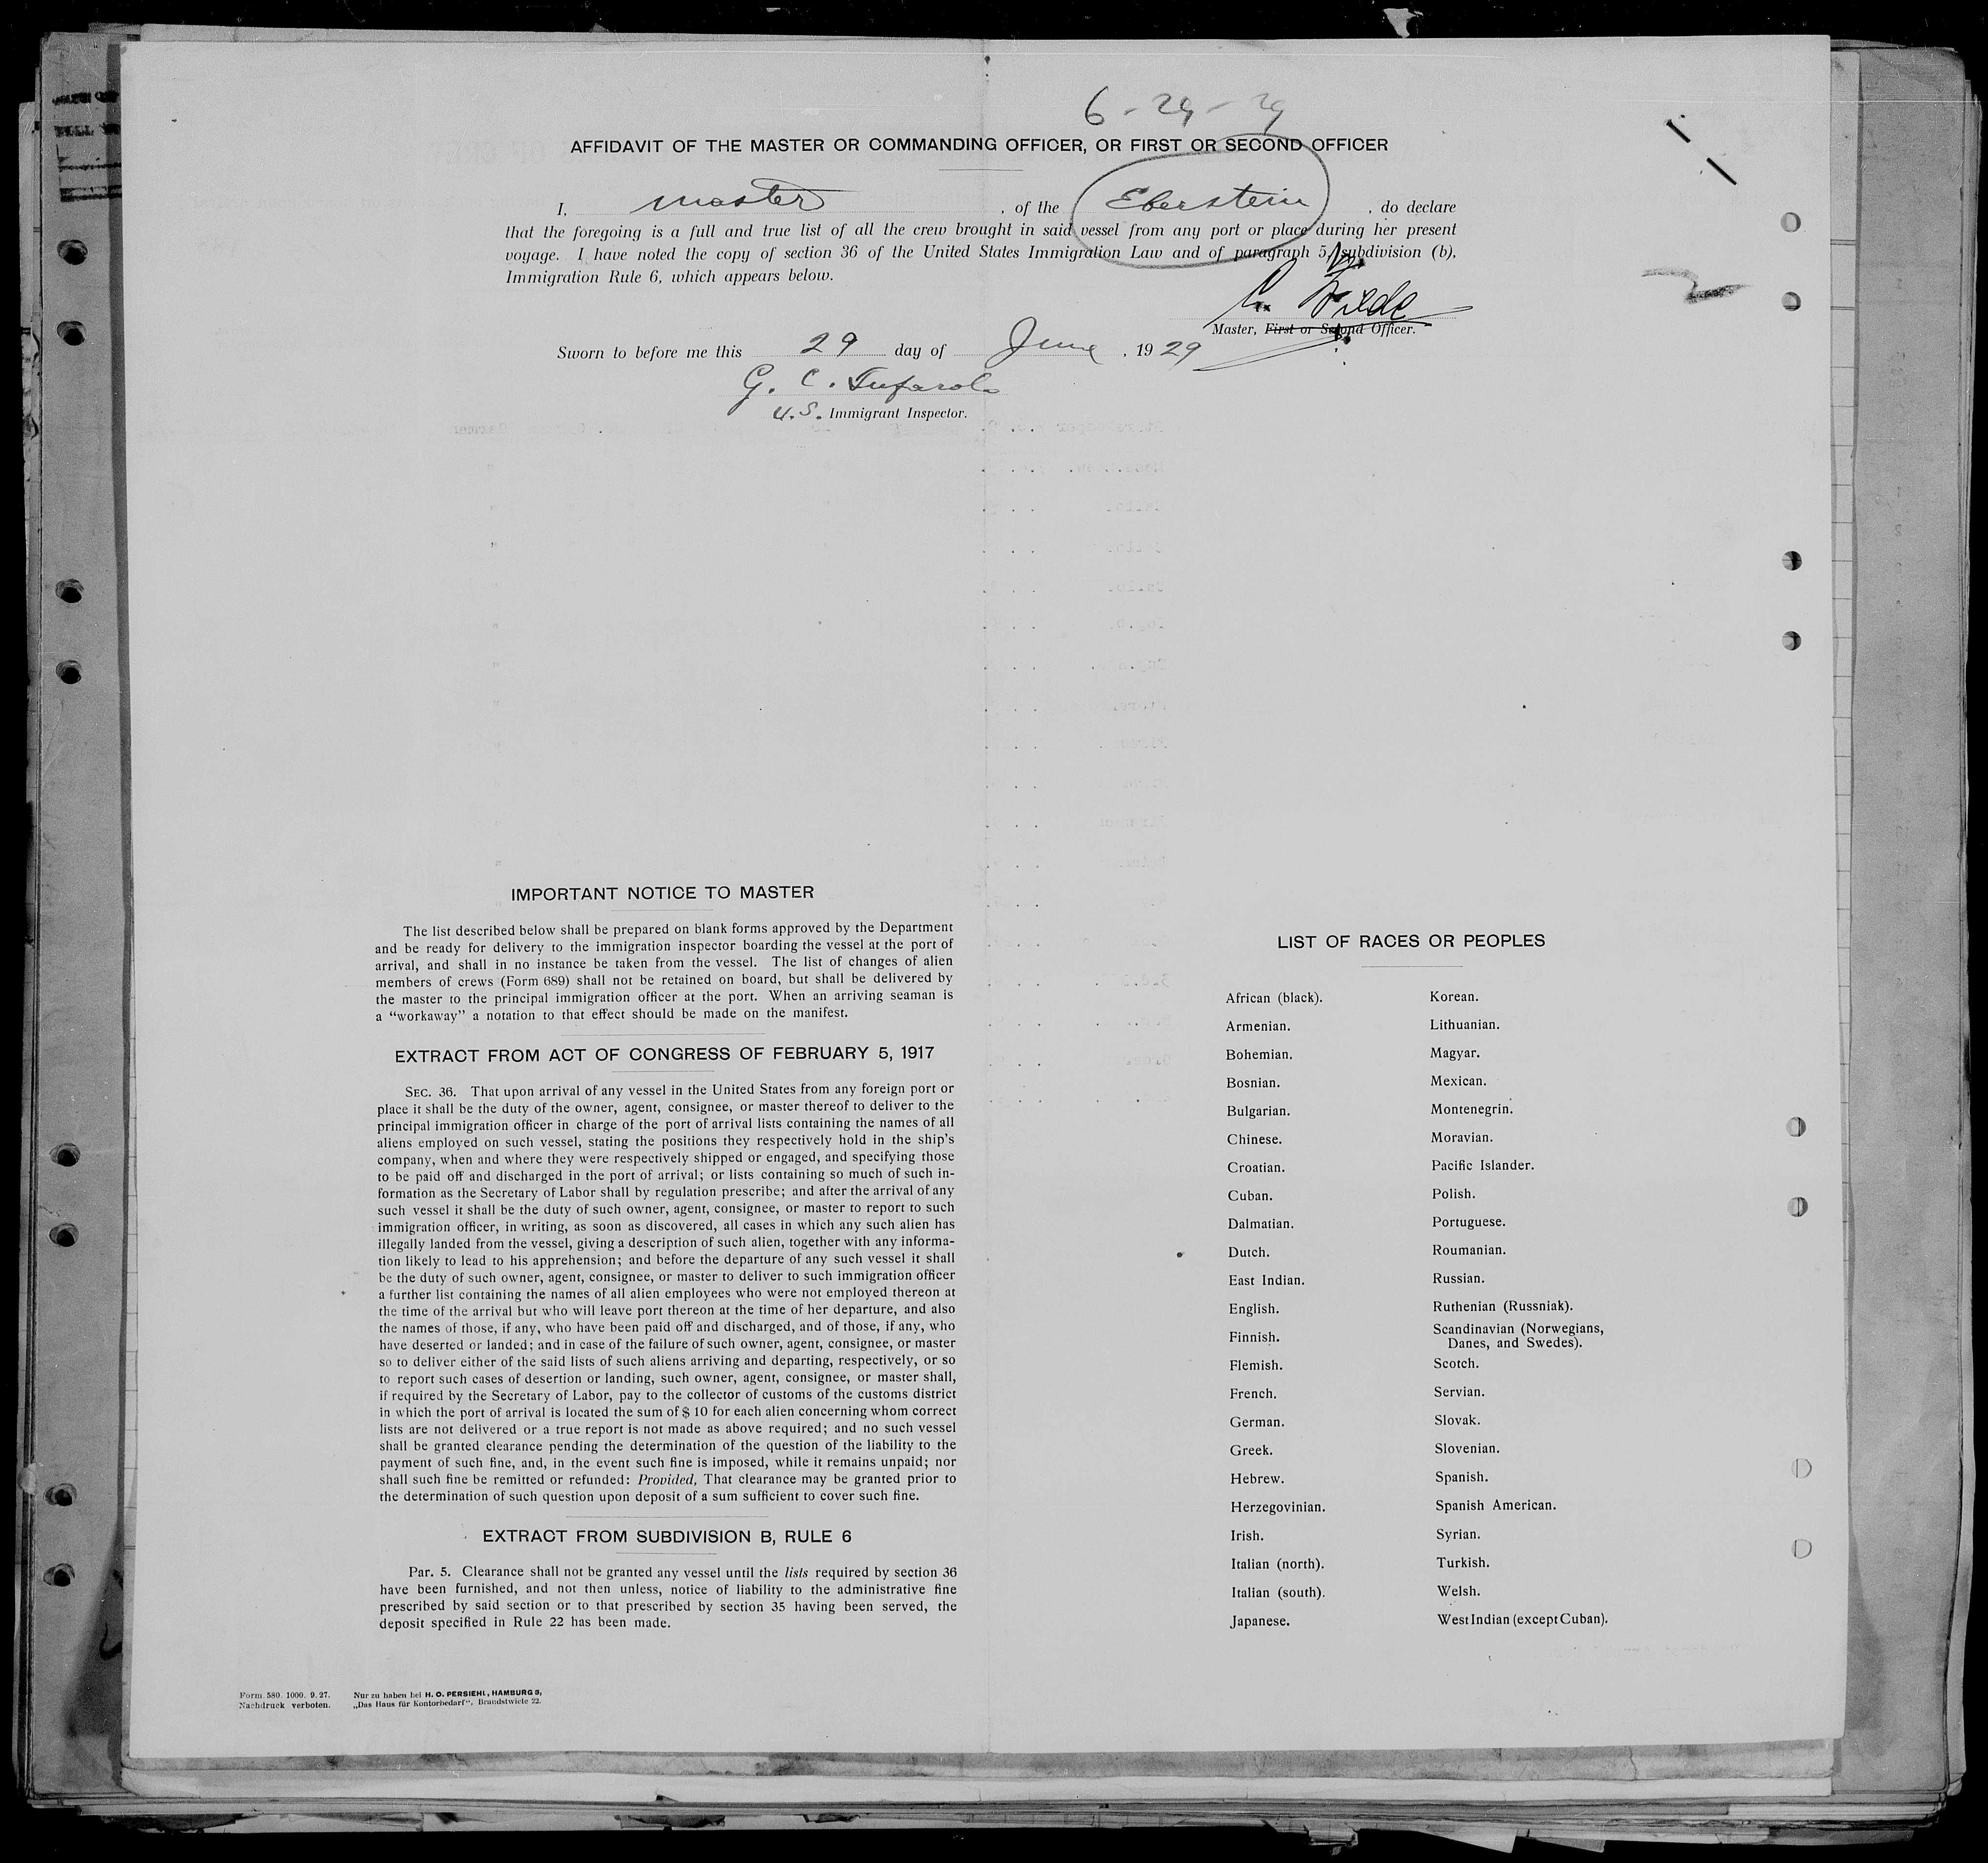 6-29-29
AFFIDAVIT OF THE MASTER OR COMMANDING OFFICER, OR FIRST OR SECOND OFFICER
I, master, of the Eberstein, do declare
that the foregoing is a full and true list of all the crew brought in said vessel from any port or place during her present
voyage. I have noted the copy of section 36 of the United States Immigration Law and of paragraph 5, subdivision (b),
Immigration Rule 6, which appears below.
Wilde
Master, First or Second Officer.
Sworn to before me this 29 day of June, 1929
G. C.
U.S. Immigrant Inspector.
IMPORTANT NOTICE TO MASTER
The list described below shall be prepared on blank forms approved by the Department
and be ready for delivery to the immigration inspector boarding the vessel at the port of
arrival, and shall in no instance be taken from the vessel. The list of changes of alien
members of crews (Form 689) shall not be retained on board, but shall be delivered by
the master to the principal immigration officer at the port. When an arriving seaman is
a “workaway” a notation to that effect should be made on the manifest.
EXTRACT FROM ACT OF CONGRESS OF FEBRUARY 5, 1917
SEC. 36. That upon arrival of any vessel in the United States from any foreign port or
place it shall be the duty of the owner, agent, consignee, or master thereof to deliver to the
principal immigration officer in charge of the port of arrival lists containing the names of all
aliens employed on such vessel, stating the positions they respectively hold in the ship's
company, when and where they were respectively shipped or engaged, and specifying those
to be paid off and discharged in the port of arrival; or lists containing so much of such in-
formation as the Secretary of Labor shall by regulation prescribe; and after the arrival of any
such vessel it shall be the duty of such owner, agent, consignee, or master to report to such
immigration officer, in writing, as soon as discovered, all cases in which any such alien has
illegally landed from the vessel, giving a description of such alien, together with any informa-
tion likely to lead to his apprehension; and before the departure of any such vessel it shall
be the duty of such owner, agent, consignee, or master to deliver to such immigration officer
a further list containing the names of all alien employees who were not employed thereon at
the time of the arrival but who will leave port thereon at the time of her departure, and also
the names of those, if any, who have been paid off and discharged, and of those, if any, who
have deserted or landed; and in case of the failure of such owner, agent, consignee, or master
so to deliver either of the said lists of such aliens arriving and departing, respectively, or so
to report such cases of desertion or landing, such owner, agent, consignee, or master shall,
if required by the Secretary of Labor, pay to the collector of customs of the customs district
in which the port of arrival is located the sum of $ 10 for each alien concerning whom correct
lists are not delivered or a true report is not made as above required; and no such vessel
shall be granted clearance pending the determination of the question of the liability to the
payment of such fine, and, in the event such fine is imposed, while it remains unpaid; nor
shall such fine be remitted or refunded: Provided, That clearance may be granted prior to
the determination of such question upon deposit of a sum sufficient to cover such fine.
EXTRACT FROM SUBDIVISION B, RULE 6
Par. 5. Clearance shall not be granted any vessel until the lists required by section 36
have been furnished, and not then unless, notice of liability to the administrative fine
prescribed by said section or to that prescribed by section 35 having been served, the
deposit specified in Rule 22 has been made.
Form. 580. 1000. 9. 27. Nur zu haben bei H. O. PERSIEHL, HAMBURG 8,
Nachdruck verboten. „Das Haus für Kontorbedarf“, Brandstwiete 22.
LIST OF RACES OR PEOPLES
African (black).
Armenian.
Bohemian.
Bosnian.
Bulgarian.
Chinese.
Croatian.
Cuban.
Dalmatian.
Dutch.
East Indian.
English.
Finnish.
Flemish.
French.
German.
Greek.
Hebrew.
Herzegovinian.
Irish.
Italian (north).
Italian (south).
Japanese.
Korean.
Lithuanian.
Magyar.
Mexican.
Montenegrin.
Moravian.
Pacific Islander.
Polish.
Portuguese.
Roumanian.
Russian.
Ruthenian (Russniak).
Scandinavian (Norwegians,
Danes, and Swedes).
Scotch.
Servian.
Slovak.
Slovenian.
Spanish.
Spanish American.
Syrian.
Turkish.
Welsh.
West Indian (except Cuban).